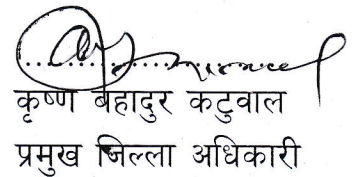 कृष्ण बहादुर कटुवाल
प्रमुख जिल्ला अधिकारी